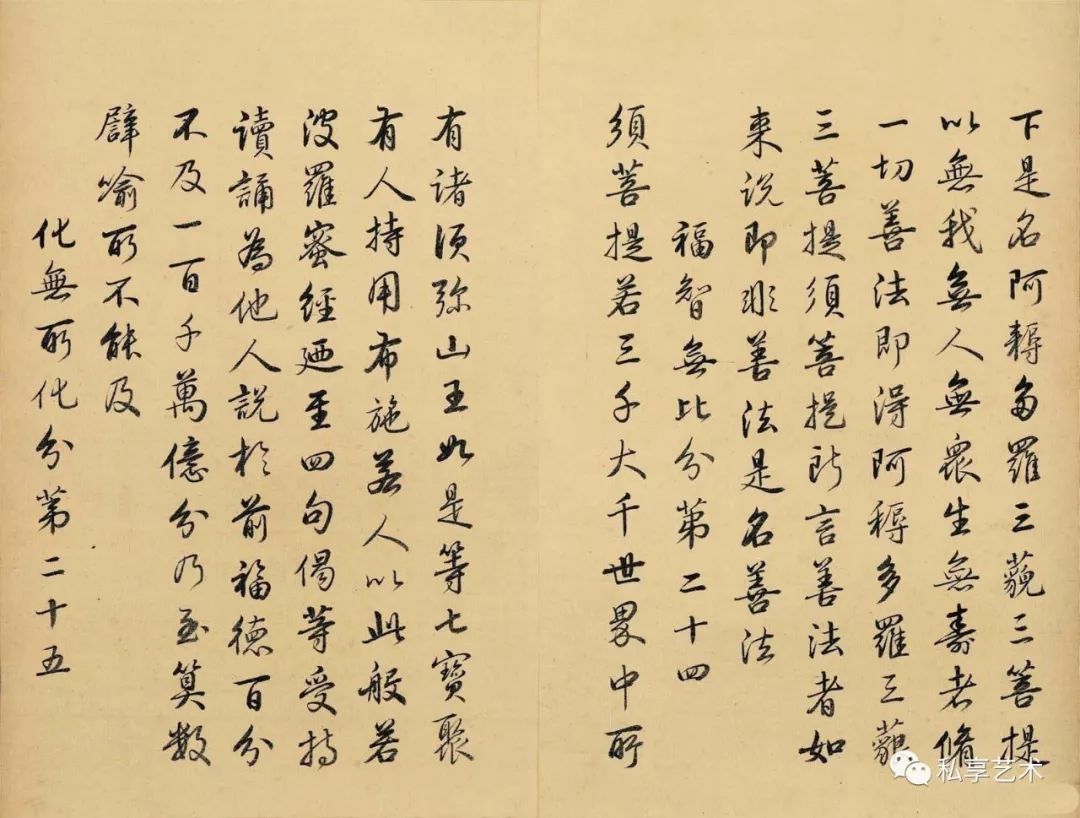 下是名阿耨多羅三藐三菩提
以無我無人無眾生無壽者脩
一切善法即得阿耨多羅三藐
三菩提須菩提所言善法者如
來說即非善法是名善法
福智無比分第二十四
須菩提若三千大千世界中所
有諸須弥山王如是等七寶聚
有人持用布施若人以此般若
波羅蜜經廼至四句偈等受持
讀誦為他人說於前福德百分
不及一百千萬億分乃至算數
譬喻所不能及
化無所化分第二十五
私享艺术